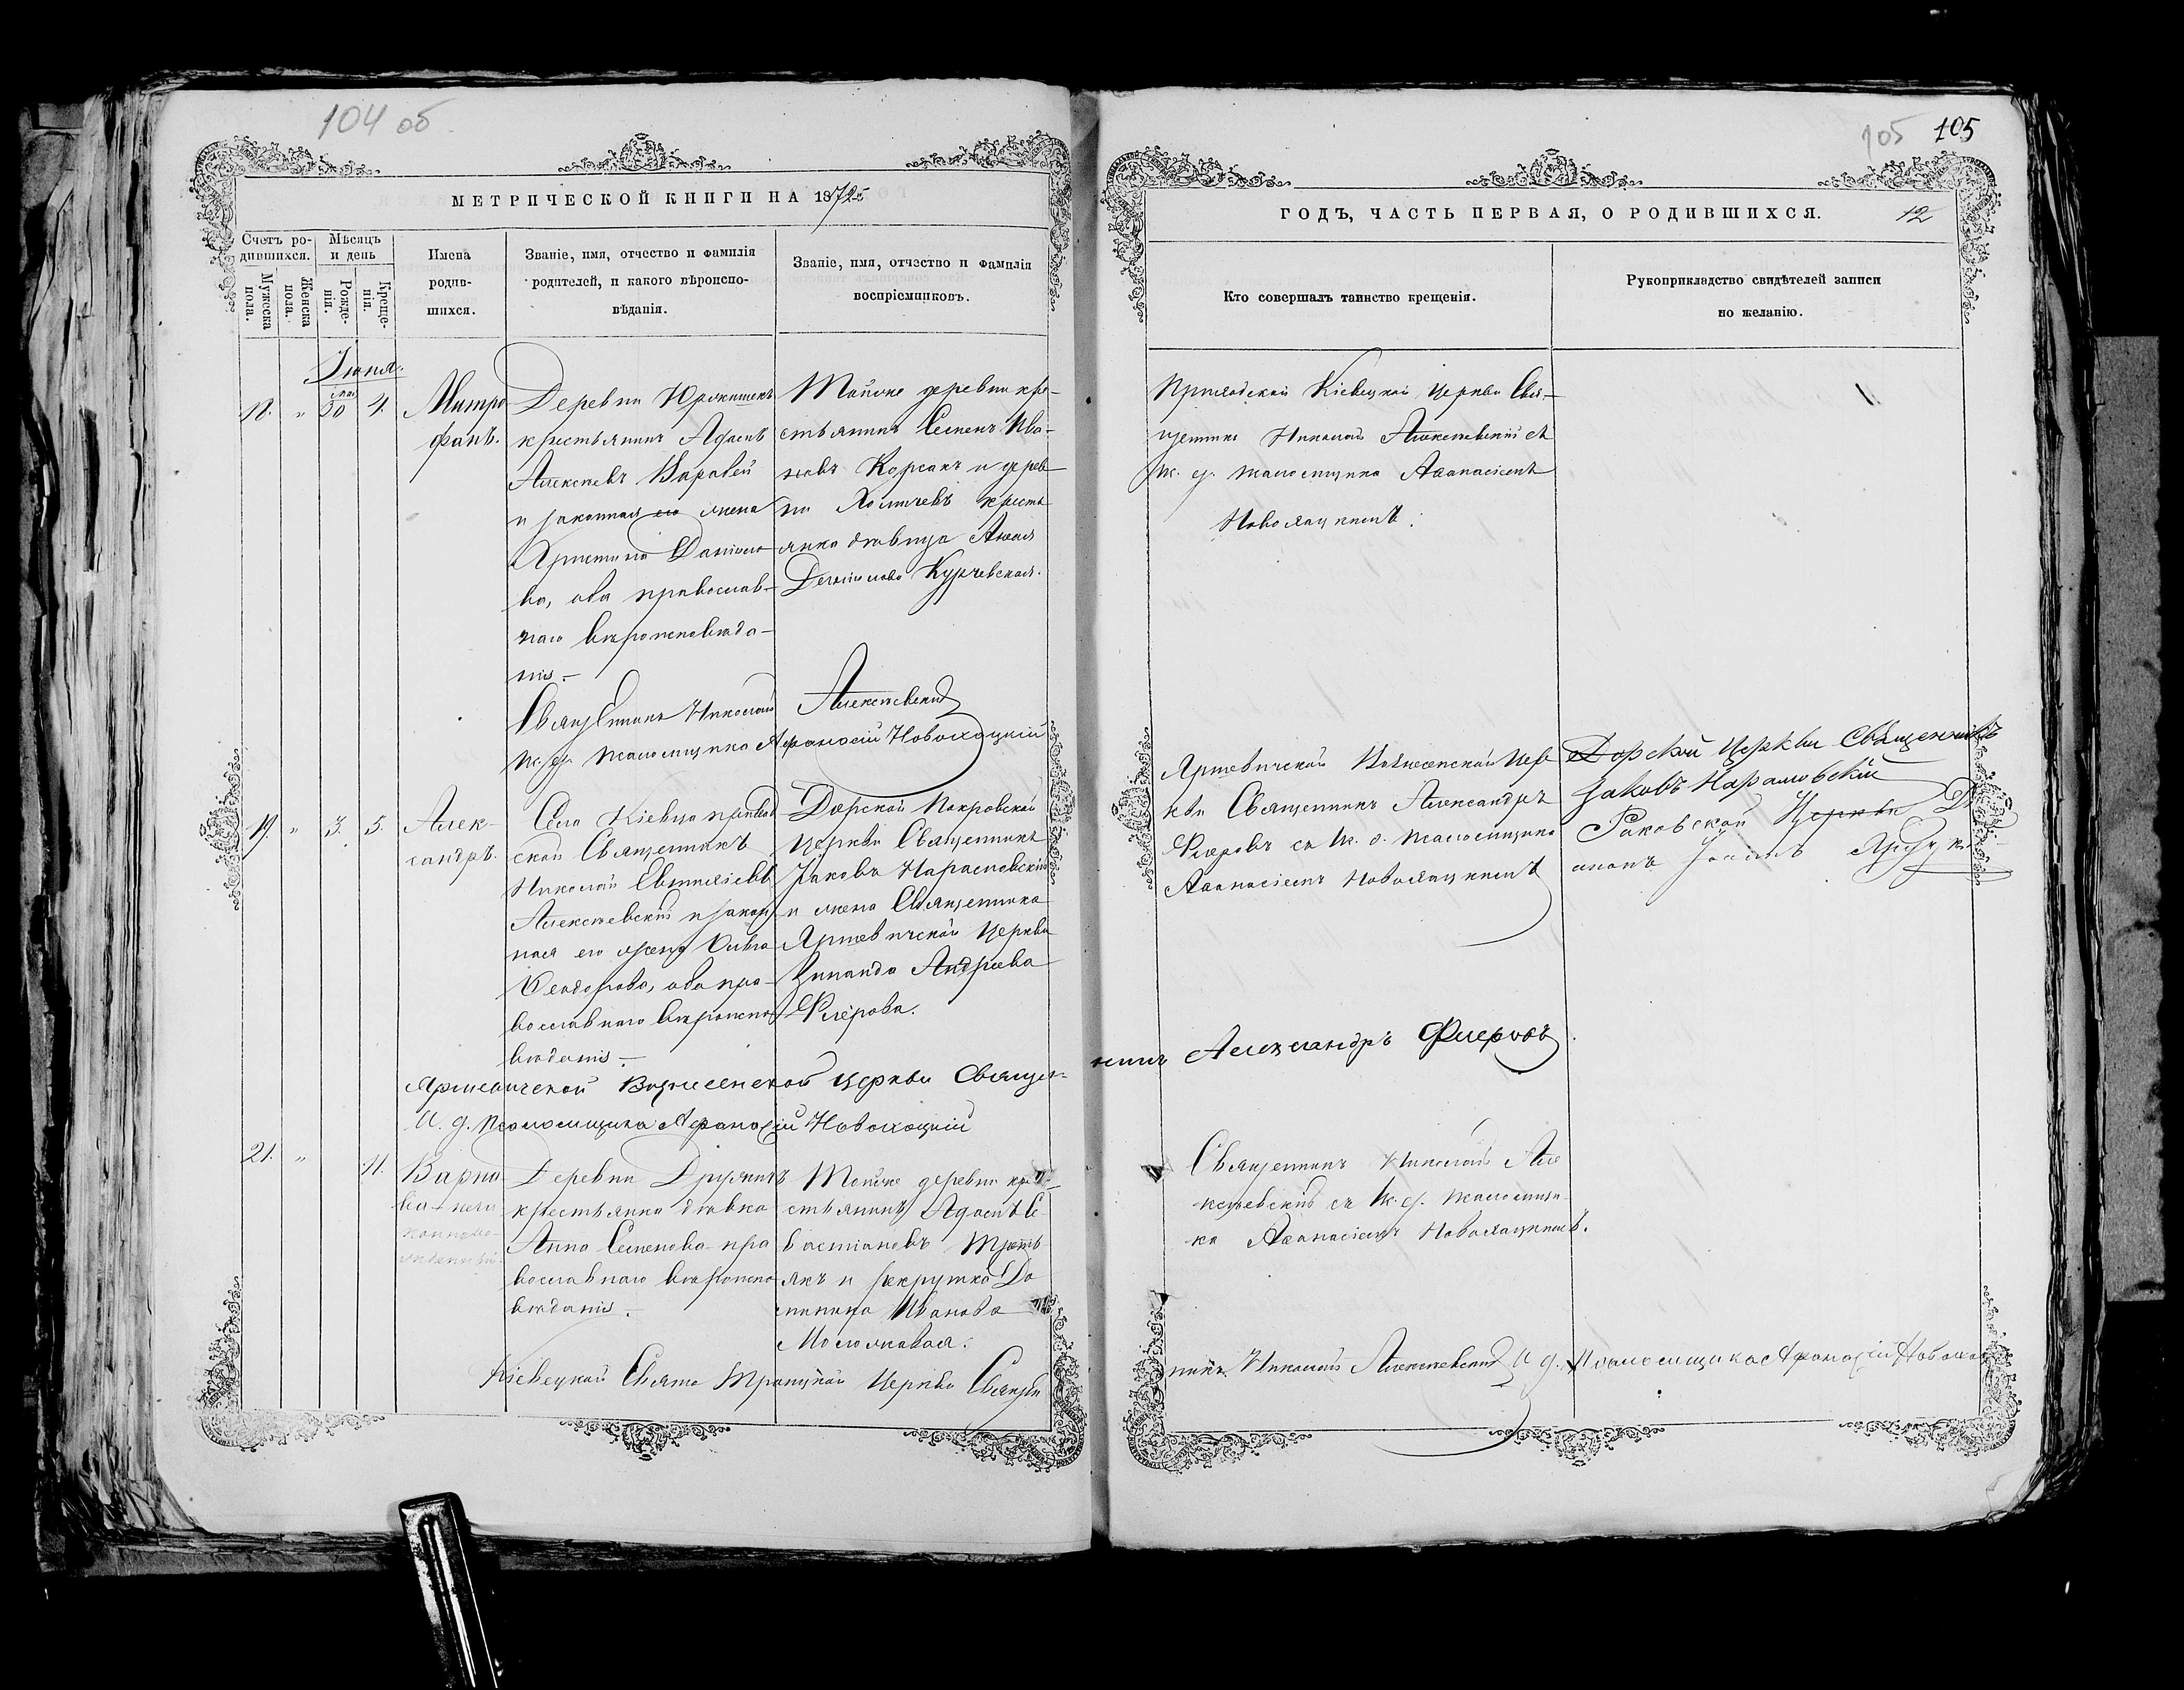 104 об
МЕТРИЧЕСКОЙ КНИГИ НА 1872й
Счетъ ро-
дившихся.
Мужеска
пола.
Женска
пола.
Мѣсяцъ
и день
Рожде-
нія.
Креще-
нія.
Имена
родив-
шихся.
Званіе, имя, отчество и фамилія
родителей, и какого вѣроиспо-
вѣданія.
Званіе, имя, отчество и фамилія
воспріемниковъ.
Іюня.
18. " 30 4.
Митро
фанъ.
Деревни
крестьянинъ Адамъ
Алексѣевъ Варавей
и законная его жена
Христина Данило
ва, оба православ-
наго вѣроисповѣда-
нія.-
Тойже деревни кре-
стьянинъ Семенъ Ива-
новъ Корсакъ и дерев
ни Холмичевъ кресть
янка дѣвица Анна
Данилова Курчевская.
Священникъ Николай Алексѣевскій
И. д. псаломщика Афанасій Новоходцкій
19. " 3. 5.
Алек-
сандръ.
Села Кіевца приход
ской Священникъ
Николай Евтихіевъ
Алексѣевскій и закон
ная его жена Ольга
Ѳеодорова, оба пра-
вославнаго вѣроиспо
вѣданія -
Дорской Покровской
церкви Священникъ
Іаковъ Нарановскій
и жена Священника
Яршевичской церкви
Зинаида Андреева
Флёрова.
Яршевичской Вознесенской церкви Священ-
И. д. псаломщика Афанасій Новоходцкій
21. " 11.
Варна
ва - неза
конно-
рожденный.
Деревни
крестьянка дѣвка
Анна Семенова пра
вославнаго вѣроиспо
вѣданія.-
Тойже деревни кре-
стьянинъ Адамъ Се
вастіановъ Треть
якъ и рекрутка До
мникія Иванова
Молоковая.
Кіевецкой Свято Троицкой церкви Священ
105 105
ГОДЪ, ЧАСТЬ ПЕРВАЯ, О РОДИВШИХСЯ. 12
Кто совершалъ таинство крещенія.
Рукоприкладство свидѣтелей записи
по желанію.
Приходской Кіевецкой церкви Свя-
щенникъ Николай Алексѣевскій съ
и. д. псаломщика Аѳанасіемъ
Новоходцкимъ.
Яршевичской Вознесенской цер
кви Священникъ Александръ
Флеровъ съ и. д. псаломщика
Аѳанасіемъ Новоходцкимъ
Дорской Церкви Священникъ
Іаковъ Нарановскій
Раковской Церкви Ді
аконъ Іоаннъ
никъ Александръ Флеровъ
Священникъ Николай Але
ксѣевскій съ и. д. псаломщи-
ка Аѳанасіемъ Новоходцкимъ.
никъ Николай Алексѣевскій И д. Псаломщика Афанасій Новоход